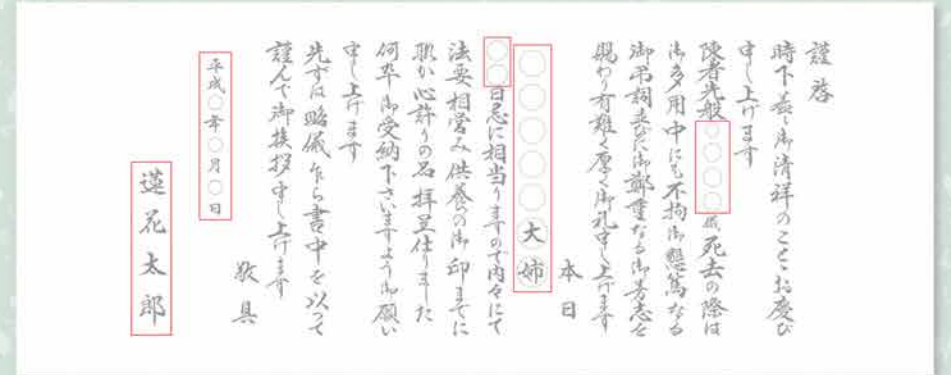 謹啓
時下益々御清祥のこととお慶び
申し上げます
陳者先般○○○○儀死去の際は
御多用中にも不拘御懇篤なる
御弔詞並びに御鄭重なる御芳志を
賜わり有難く厚く御礼申し上げます
本日
○○○○○○大姉
○○日忌に相当りますので内々にて
法要相営み供養の御印までに
聊か心許りの品拝呈仕りました
何卒御受納下さいますよう御願い
申し上げます
先ずは略儀乍ら書中を以って
謹んで御挨拶申し上げます
敬具
平成○年○月○日
蓮花太郎